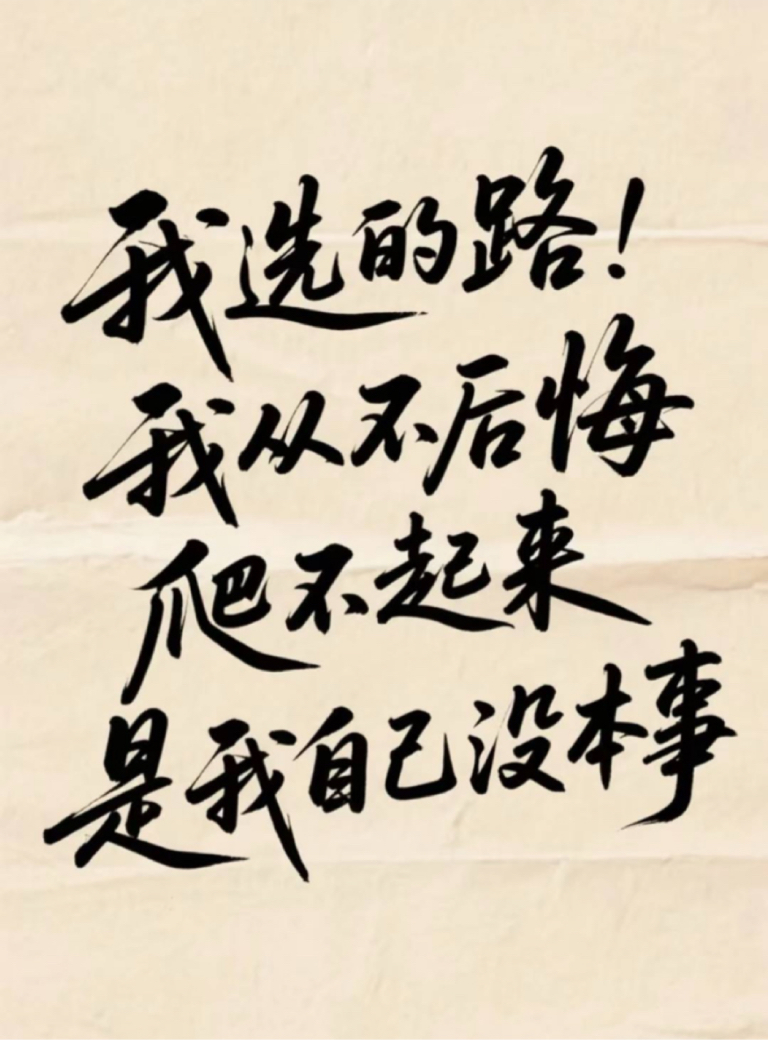 我选的路！
我从不后悔
爬不起来
是我自己没本事